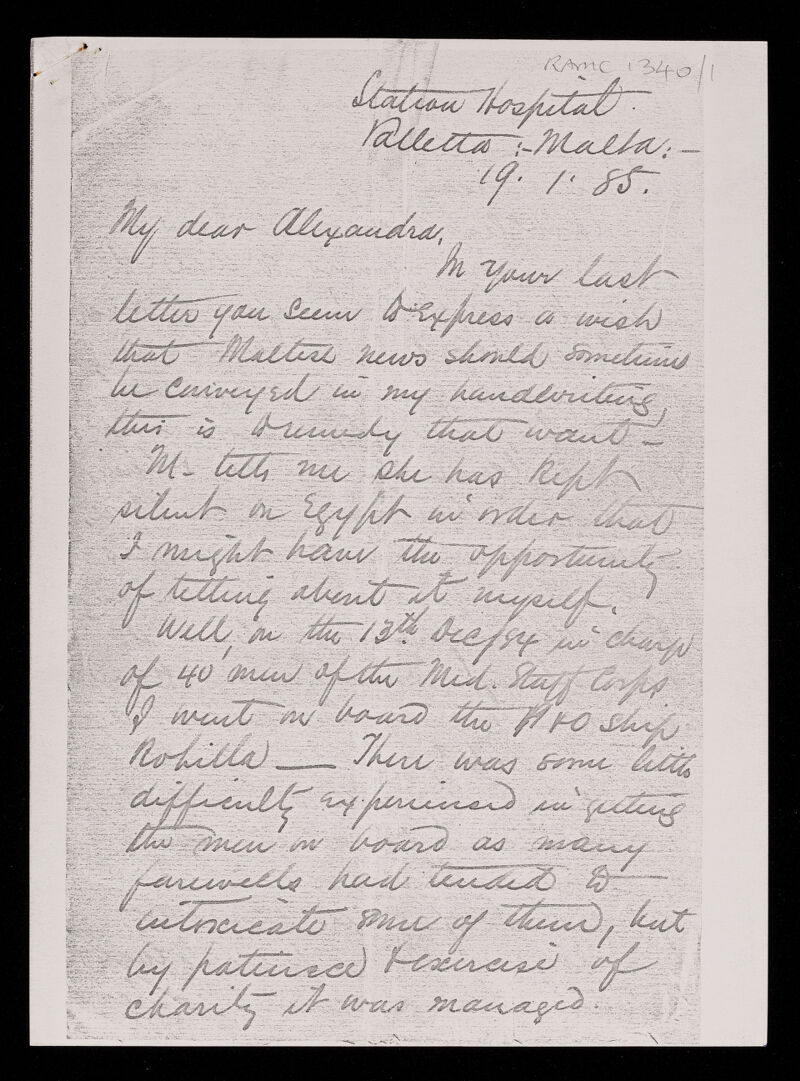 RAMC 1340/1
Station Hospital.
Valletta :- Malta :-
19. 1. 85.
My dear Alexandra,
In your last
letter you seem to express a wish
that Maltese news should sometimes
be conveyed in my handwriting,
this is to remedy that want -
M- tells me she has kept
silent on Egypt in order that
I might have the opportunity
of telling about it myself.
Well, on the 13th Dec/84 in charge
of 40 men of the Med. Staff Corps
I went on board the P&O ship
Rohilla — There was some little
difficulty experienced in getting
the men on board as many
farewells had tended to
intoxicate some of them, but
by patience & exercise of
charity it was managed.